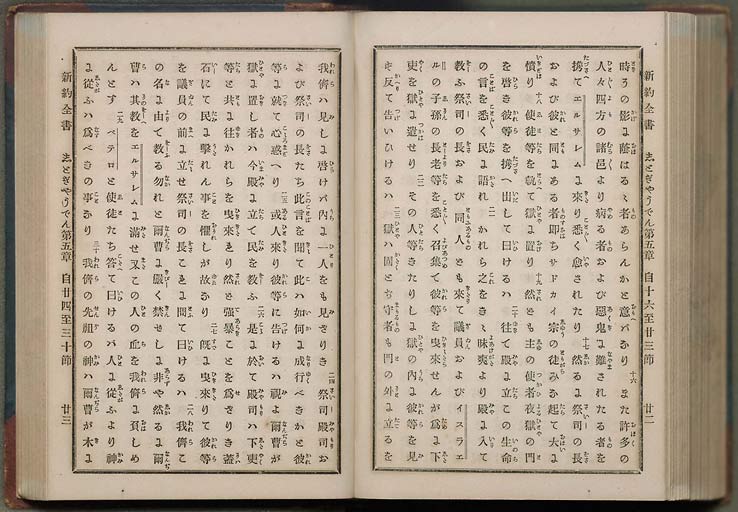 新約全書 志とぎやうでん第五章 自十六至廿三節 廿二
時その影に蔭はるゝ者あらんかと意へバなり 十六 また許多の
人々四方の諸邑より病る者および惡鬼に難されたる者を
携てエルサレムに來り悉く愈されたり 十七 然るに祭司の長
および彼と同にある者即ちサドカイ宗の徒みな起て大に
憤り 十八 使徒等を執て獄に置り 十九 然とも主の使者夜獄の門
を啓き彼等を携へ出して曰けるハ 二十 徃て殿に立この生命
の言を悉く民に語れ 二一 かれら之をきゝ昧爽より殿に入て
教ふ祭司の長および同人とも來て議員およびイスラエ
ルの子孫の長老等を悉く召集て彼等を曳來せんが爲に下
吏を獄に遣せり 二二 その人等きたりしに獄の内に彼等を見
ず反て告いひけるハ 二三 獄ハ固とぢ守者も門の外に立たるを
我儕ハ見しに啓けバ内に一人をも見ざりき 二四 祭司殿司お
よび祭司の長たち此言を聞て此ハ如何に成行べきかと彼
等に就て心惑へり 二五 或人來り彼等に告けるハ視よ爾曹が
獄に置し者ハ今殿に立て民を教ふ 二六 是に於て殿司ハ下吏
等と共に徃かれらを曳來きり然と強暴ことを爲ざりき蓋
石にて民に擊れん事を懼しが故なり 二七 既に曳來りて彼等
を議員の前に立せ祭司の長これに問て曰けるハ 二八 我儕こ
の名に由て教る勿れと爾曹に嚴く禁ぜしに非や然るに爾
曹ハ其教をエルサレムに滿せ又この人の血を我儕に負しめ
んとす 二九 ペテロと使徒たち答て曰けるハ人に從ふより神
に從ふハ爲べきの事なり 三十 我儕の先祖の神ハ爾曹が木に
新約全書 志とぎやうでん第五章 自廿四至三十節 廿三